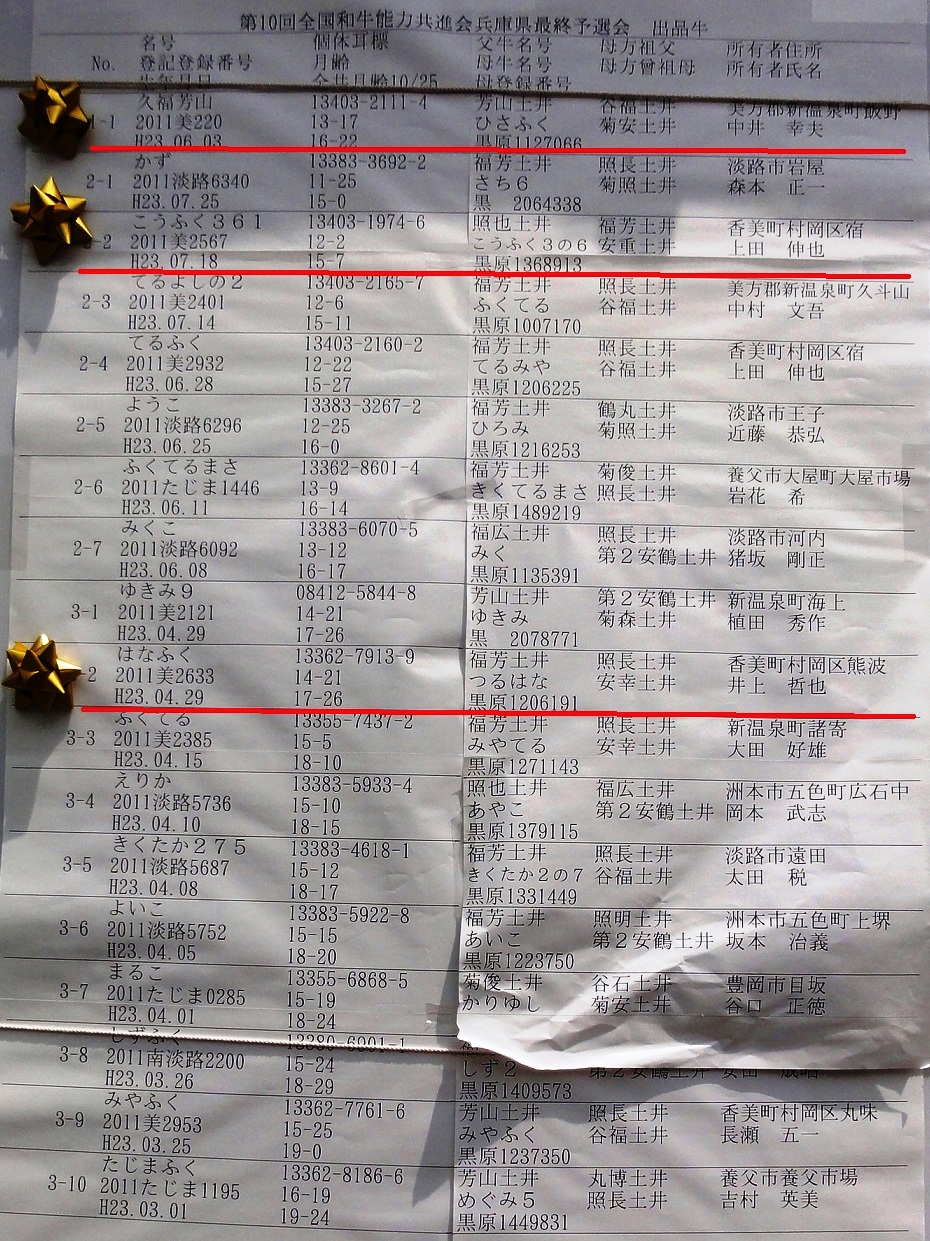 第10回全国和牛能力共進会兵庫県最終予選会 出品牛
名号 個体耳標 父牛名号 母方祖父 所有者住所
No. 登記登録番号 月齢 母牛名号 母方曾祖母 所有者氏名
生年月日 全共月齢10/25 母登録番号
久福芳山 13403-2111-4 芳山土井 谷福土井 美方郡新温泉町飯野
1-1 2011美220 13-17 ひさふく 菊安土井 中井 幸夫
H23.06.03 16-22 黒原1127066
かず 13383-3692-2 福芳土井 照長土井 淡路市岩屋
2-1 2011淡路6340 11-25 さち6 菊照土井 森本 正一
H23.07.25 15-0 黒 2064338
こうふく361 13403-1974-6 照也土井 福芳土井 香美町村岡区宿
-2 2011美2567 12-2 こうふく3の6 安重土井 上田 伸也
H23.07.18 15-7 黒原1368913
てるよしの2 13403-2165-7 福芳土井 照長土井 美方郡新温泉町久斗山
2-3 2011美2401 12-6 ふくてる 谷福土井 中村 文吾
H23.07.14 15-11 黒原1007170
てるふく 13403-2160-2 福芳土井 照長土井 香美町村岡区宿
2-4 2011美2932 12-22 てるみや 谷福土井 上田 伸也
H23.06.28 15-27 黒原1206225
ようこ 13383-3267-2 福芳土井 鶴丸土井 淡路市王子
2-5 2011淡路6296 12-25 ひろみ 菊照土井 近藤 恭弘
H23.06.25 16-0 黒原1216253
ふくてるまさ 13362-8601-4 福芳土井 菊俊土井 養父市大屋町大屋市場
2-6 2011たじま1446 13-9 きくてるまさ 照長土井 岩花 希
H23.06.11 16-14 黒原1489219
みくこ 13383-6070-5 福広土井 照長土井 淡路市河内
2-7 2011淡路6092 13-12 みく 第2安鶴土井 猪坂 剛正
H23.06.08 16-17 黒原1135391
ゆきみ9 08412-5844-8 芳山土井 第2安鶴土井 新温泉町海上
3-1 2011美2121 14-21 ゆきみ 菊森土井 植田 秀作
H23.04.29 17-26 黒 2078771
はなふく 13362-7913-9 福芳土井 照長土井 香美町村岡区熊波
-2 2011美2633 14-21 つるはな 安幸土井 井上 哲也
H23.04.29 17-26 黒原1206191
ふくてる 13355-7437-2 福芳土井 照長土井 新温泉町諸寄
3-3 2011美2385 15-5 みやてる 安幸土井 大田 好雄
H23.04.15 18-10 黒原1271143
えりか 13383-5933-4 照也土井 福広土井 洲本市五色町広石中
3-4 2011淡路5736 15-10 あやこ 第2安鶴土井 岡本 武志
H23.04.10 18-15 黒原1379115
きくたか275 13383-4618-1 福芳土井 照長土井 淡路市遠田
3-5 2011淡路5687 15-12 きくたか2の7 谷福土井 太田 税
H23.04.08 18-17 黒原1331449
よいこ 13383-5922-8 福芳土井 照明土井 洲本市五色町上堺
3-6 2011淡路5752 15-15 あいこ 第2安鶴土井 坂本 治義
H23.04.05 18-20 黒原1223750
まるこ 13355-6868-5 菊俊土井 谷石土井 豊岡市目坂
3-7 2011たじま0285 15-19 かりゆし 菊安土井 谷口 正徳
H23.04.01 18-24
しずふく
3-8 2011南淡路2200 15-24 しず2 第2安鶴土井
H23.03.26 18-29 黒原1409573
みやふく 13362-7761-6 芳山土井 照長土井 香美町村岡区丸味
3-9 2011美2953 15-25 みやふく 谷福土井 長瀬 五一
H23.03.25 19-0 黒原1237350
たじまふく 13362-8186-6 芳山土井 丸博土井 養父市養父市場
3-10 2011たじま1195 16-19 めぐみ5 照長土井 吉村 英美
H23.03.01 19-24 黒原1449831